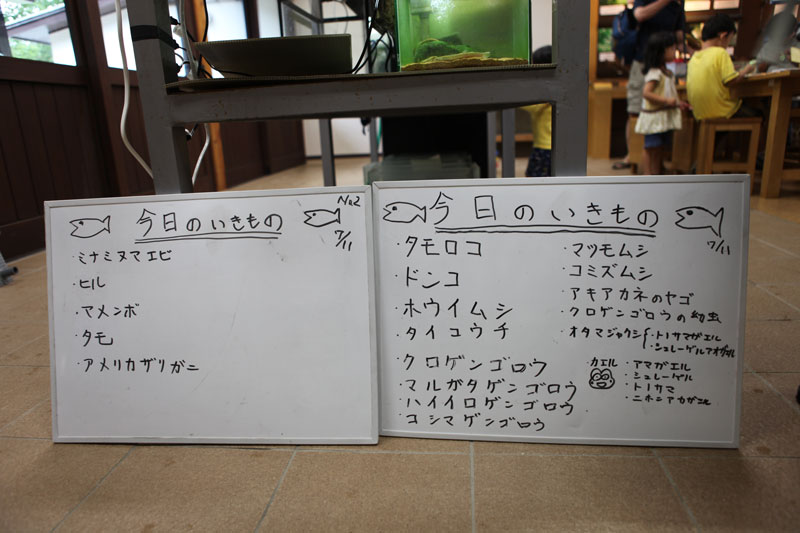 今日のいきもの
No2
7/11
・ミナミヌマエビ
・ヒル
・マメンボ
・タモ
・アメリカザリガニ
今日のいきもの
7/11
・タモロコ
・ドンコ
・ホウイムシ
・タイコウチ
・クロゲンゴロウ
・マルガタゲンゴロウ
・ハイイロゲンゴロウ
・コシマゲンゴロウ
・マツモムシ
・コミズムシ
・アキアカネのヤゴ
・クロゲンゴロウの幼虫
・オタマジャクシ{・トノサマガエル
・シュレーゲルアオガエル
カエル
・アマガエル
・シュレーゲル
・トノサマ
・ニホンアカガエル